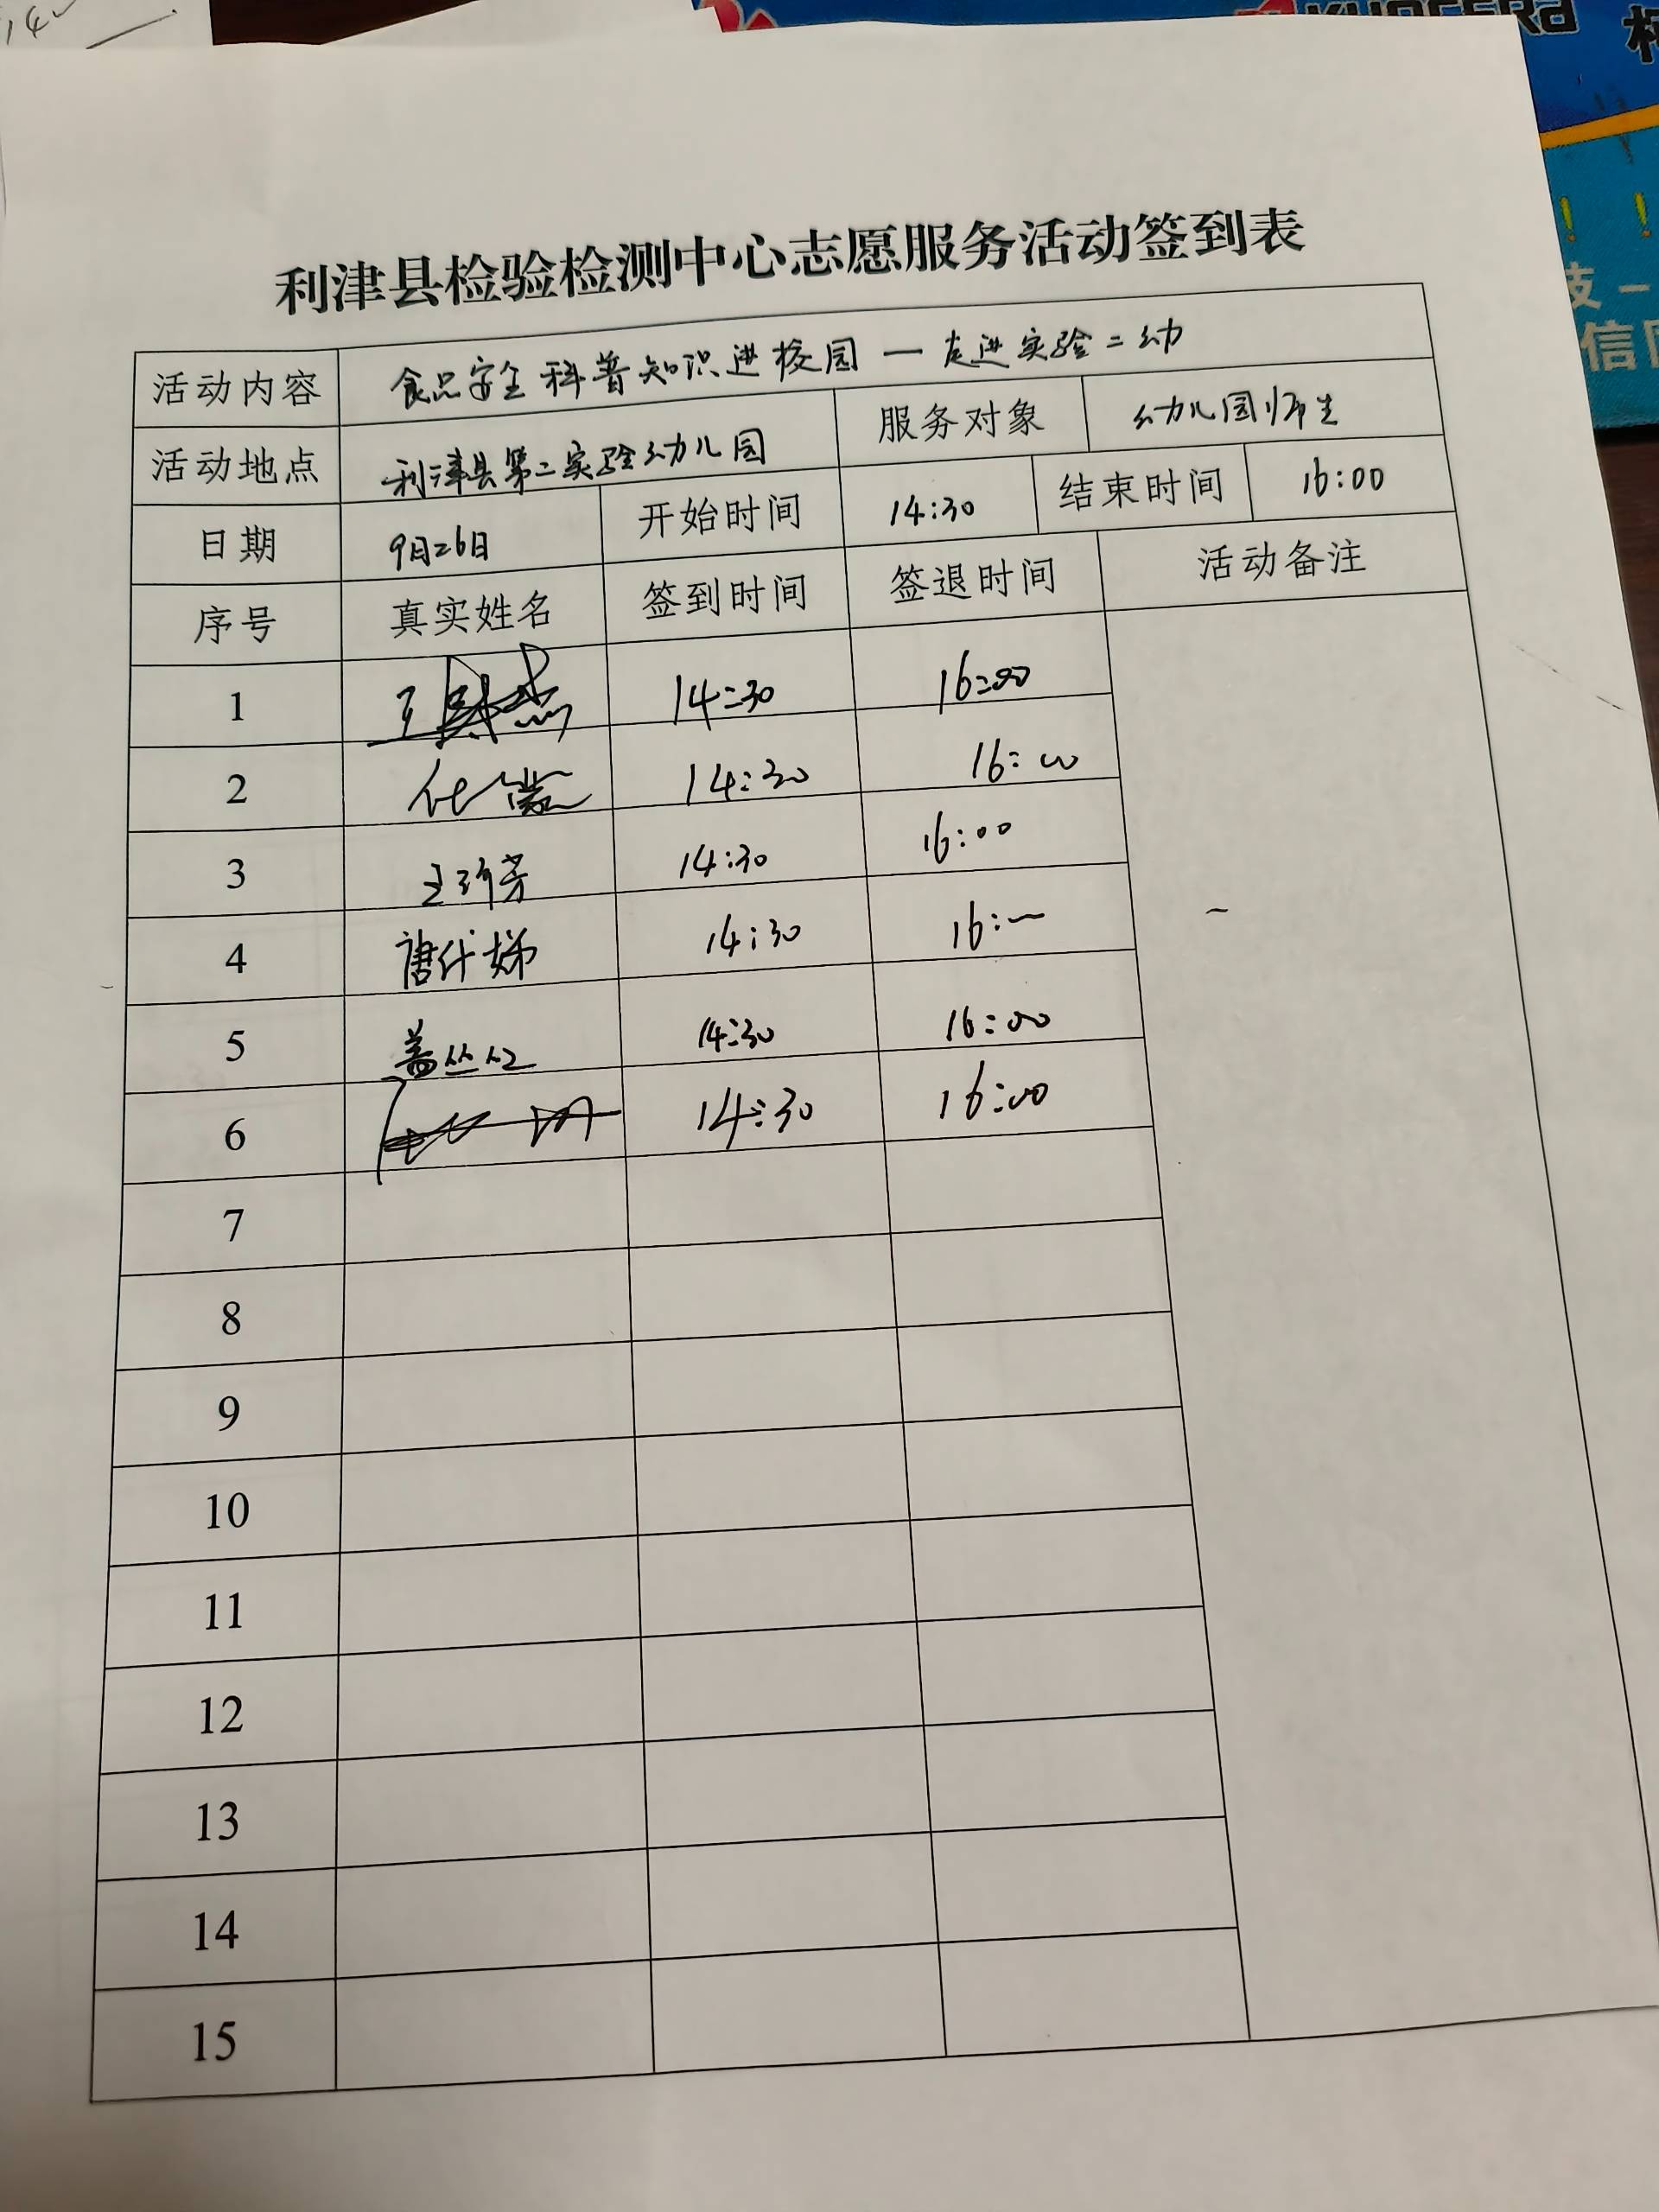 14
KYOCERa
技一
信
利津县检验检测中心志愿服务活动签到表
活动内容 食品安全科普知识进校园一走进实验二幼
活动地点 利津县第二实验幼儿园 服务对象 幼儿园师生
日期 9月26日 开始时间 14:30 结束时间 16:00
序号 真实姓名 签到时间 签退时间 活动备注
1 14:30 16:00
2 14:30 16:00
3 14:30 16:00
4 14:30 16:
5 14:30 16:00
6 14:30 16:00
7
8
9
10
11
12
13
14
15